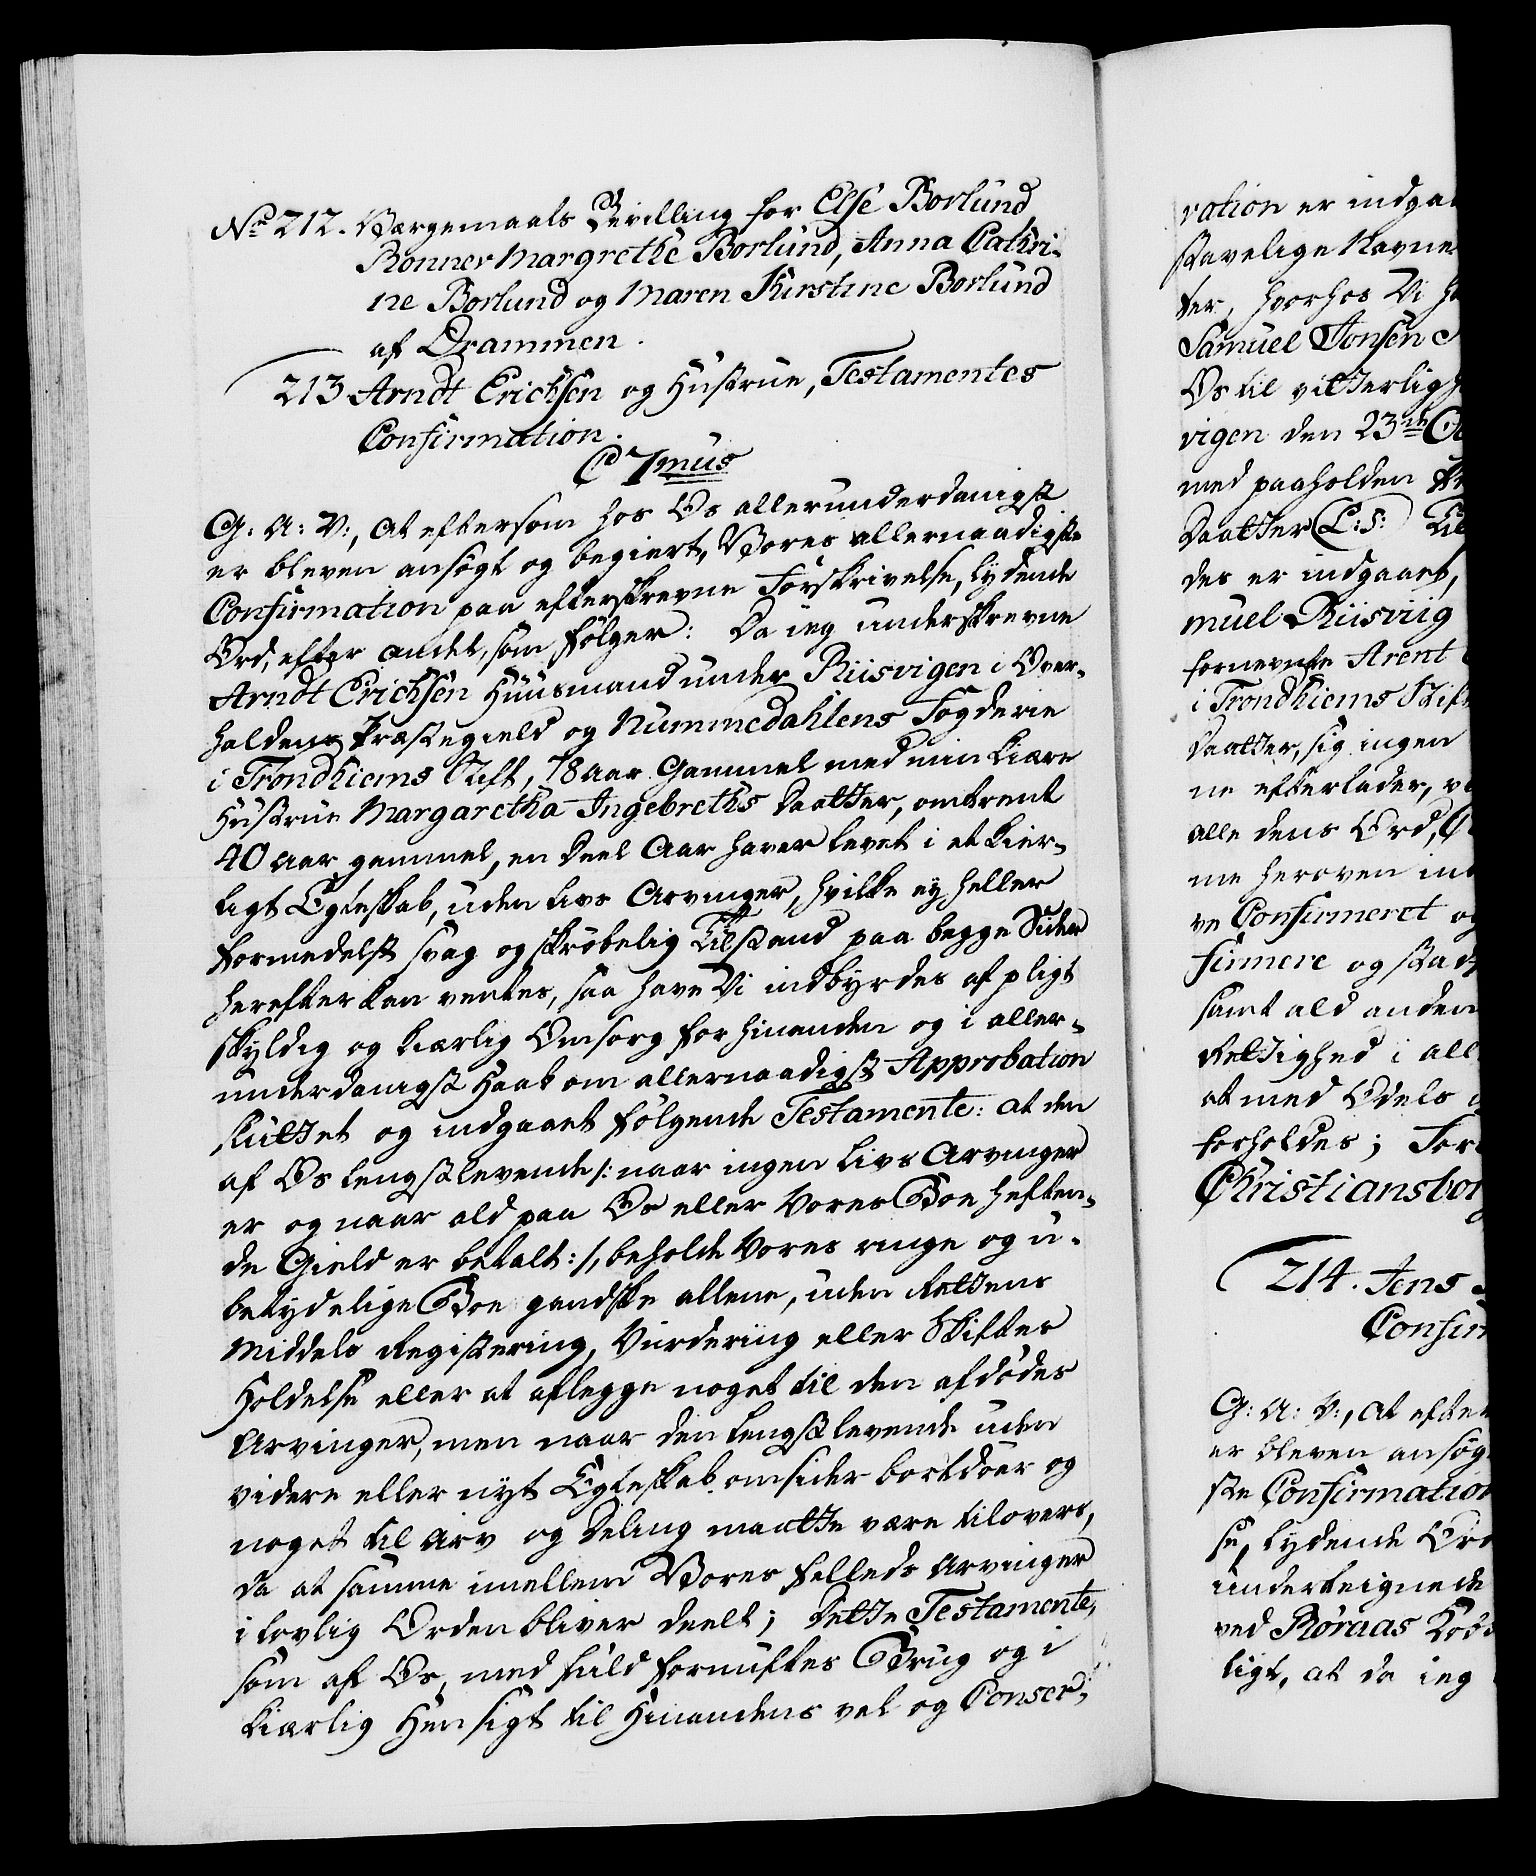 No 212. Værgemaals Bevilling for Else Borlund
Ronner Margrethe Borlund, Anna Cathri-
ne Borlund og Maren Kirstine Borlund
af Drammen.
213 Arndt Erichsen og Hustrue, Testamentes
Confirmation.
C 7mus
G: A: V:, at eftersom hos Os allerunderdanigst
er bleven ansøgt og begiert, Vores allernaadigste
Confirmation paa efterskrevne Forskrivelse, lydende
Ord, efter andet, som følger: Da ieg underskrevne
Arndt Erichsen Huusmand under Riisvigen i Over-
haldens Præstegield og Nummedahlens Fogderie
i Trondhiems Stift, 78 aar Gammel med min kiære
Hustrue Margaretha Ingebreths Daatter, omtrent
40 aar gammel, en Deel Aar haver levet i et kier-
ligt Egteskab, uden Livs Arvinger, hvilke ey heller
formedelst svag og skrøbelig Tilstand paa begge Sider
herefter kan ventes, saa have Vi indbyrdes af pligt
skyldig og kiærlig Omsorg for hinanden og i aller-
underdanigst Haab om allernaadigst Approbation
sluttet og indgaaet følgende Testamente: at den
af Os lengstlevende /: naar ingen Livs Arvinger
er og naar ald paa Os eller Vores Boe heften-
de Gield er betalt :/, beholde Vores ringe og u-
betydelige Boe gandske allene, uden Rettens
Middels Registering, Vurdering eller Skiftes
Holdelse eller at aflegge noget til den afdødes
Arvinger, men naar den lengstlevende uden
videre eller nyt Egteskab omsider bortdøer og
noget til Arv og Deling maatte være tilovers,
da at samme imellem Vores fælleds Arvinger
i lovlig Orden bliver deelt; Dette Testamente,
som af Os, med fuld Fornuftes Brug og i
kiærlig Hensigt til Hinandens vel og Conser-
vation er indgaa
stavelige Navne
ter, hvorhos Vi ha
Samuel Jonsen
Os til vitterligh
vigen den 23de Oc
med paaholden
Daatter (L: S:)
des er indgaaet,
muel Riisviig
fornevnte Arent
i Trondhiems Stift
Daatter, sig ingen
ne efterlader, v
alle dens Ord,
me heroven in
ve Confirmeret og
firmere og stad
samt ald anden
Rettighed i all
at med Odels
forholdes; For
Christiansbor
214. Jens
Confir
G: A: V:, at efter
er bleven ansøg
ste Confirmation
se, lydende Ord
undertegnede
ved Røraas Kob
ligt, at da ieg